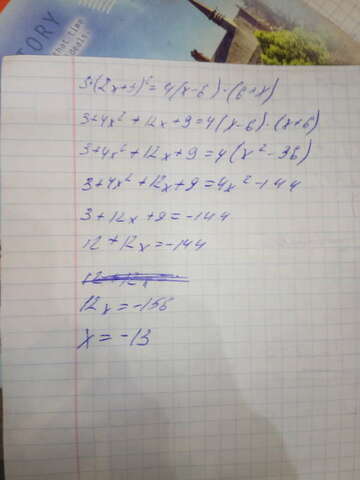 TORY
that time
deals
3+(2x+3)²=4(x-6)·(6+x)
3+4x²+12x+9=4(x-6)·(x+6)
3+4x²+12x+9=4(x²-36)
3+4x²+12x+9=4x²-144
3+12x+9=-144
12+12x=-144
12x=-156
x=-13